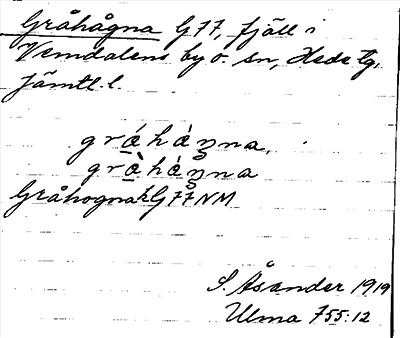 Gråhågna G77, fjäll i
Vemdalens by o. sn, Hede tg,
Jämtl. l.
gráhàŋna,
gràhàŋna
Gråhogna G77NM
S. Åsander 1919
Ulma 755:12